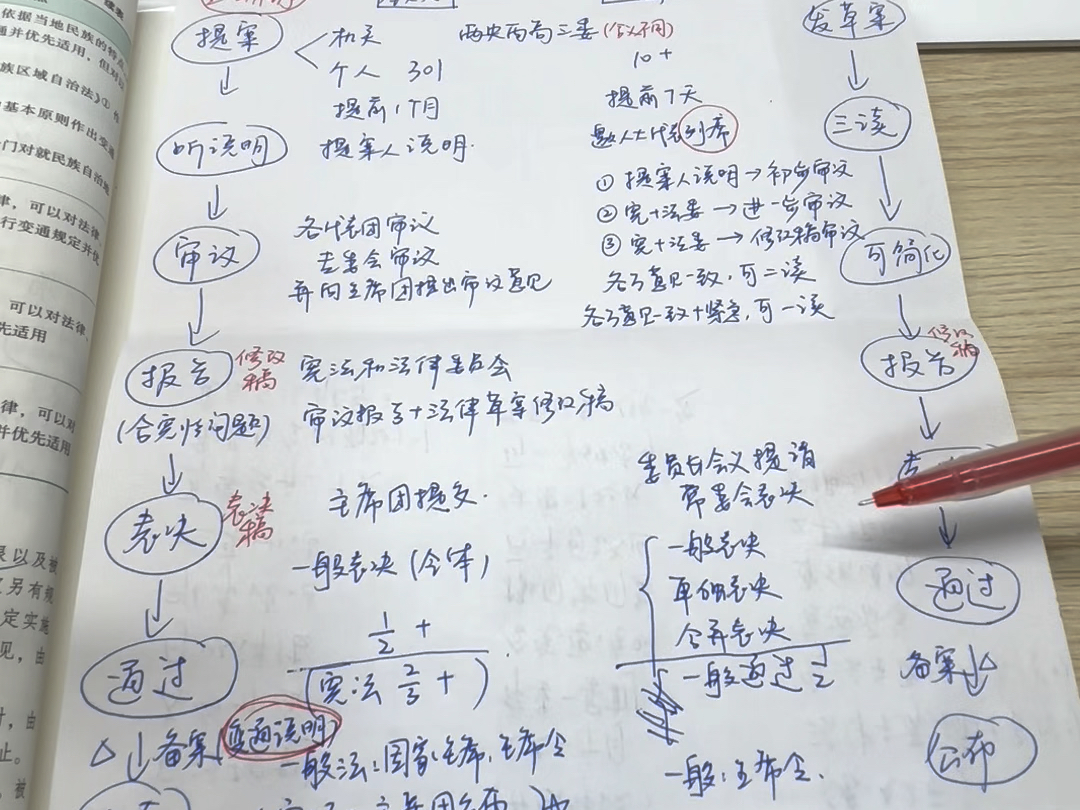 依据当地民族的特点
通并优先适用，但对以
族区域自治法》①
基本原则作出变通
门对就民族自治地
律，可以对法律、
行变通规定并优
可以对法律、
先适用
律，可以对
并优先适用
提案
机关
个人 301
提前1个月
两央两高三委(个人不同)
10+
提前7天
邀人大代表列席
发草案
听说明
提案人说明.
三读
① 提案人说明→初步审议
② 宪+法委→进一步审议
③ 宪+法委→修改稿审议
各方意见一致,可二读
各方意见一致+紧急,可一读
可简化
审议
各代表团审议
专委会审议
并向主席团提出审议意见
报告
修改稿
(合宪性问题)
宪法和法律委员会
审议报告+法律草案修改稿
报告
修改稿
表决
表决稿
主席团提交.
一般表决(全体)
委员长会议提请
常委会表决
一般表决
单独表决
合并表决
表
通过
1/2+
(宪法 2/3+)
一般通过 1/2
通过
△ 备案(变通说明)
一般法:国家主席,主席令
一般:主席令.
备案 △
公布